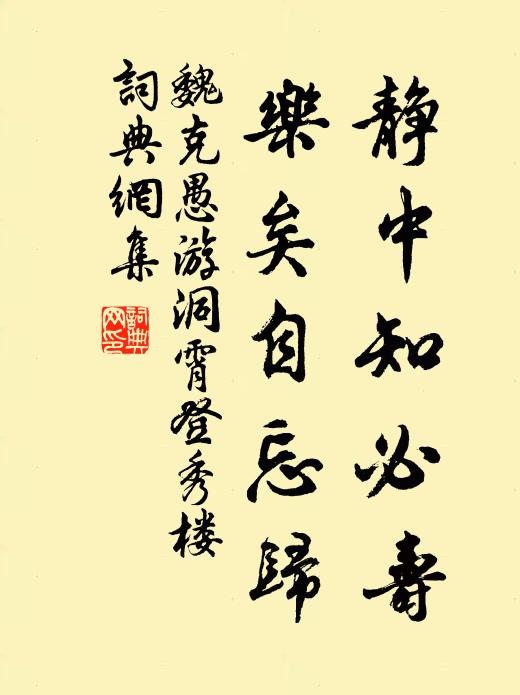 静中知必壽
樂矣自忘歸
魏克愚游洞霄登秀楼
詞典網集
詞典
网印